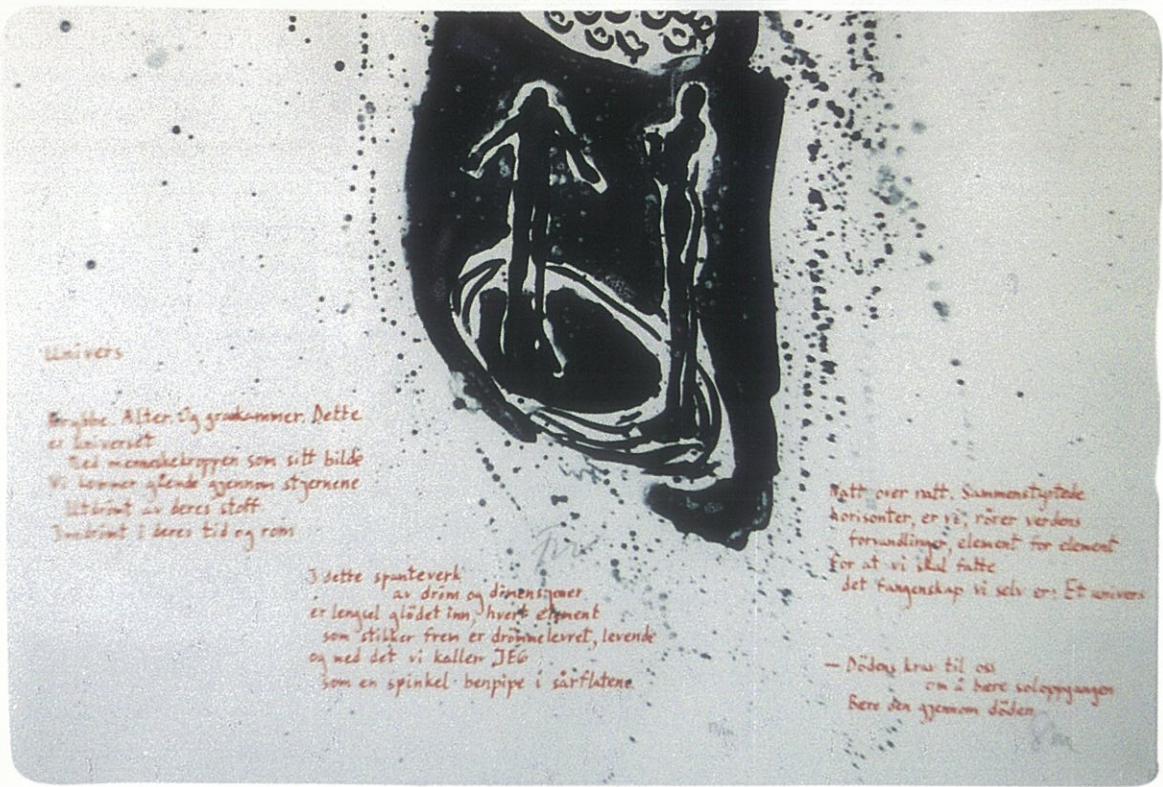 Univers
Krybbe. Alter. Og gravkammer. Dette
er universet
Med menneskekroppen som sitt bilde
Vi kommer gående gjennom stjernene
Utdrömt av deres stoff
Inndrömt i deres tid og rom
I dette spanteverk
av dröm og dimensjoner
er lengsel glödet inn, hvert element
som stikker frem er drömmelevret, levende
og med det vi kaller JEG
som en spinkel benpipe i sårflatene
Natt over natt. Sammenstyrtede
horisonter, er vi, rörer verdens
forvandlinger, element for element
for at vi skal fatte
det fangenskap vi selv er: Et univers
— Dödens krav til oss
om å bære soloppgangen
Bære den gjennom döden